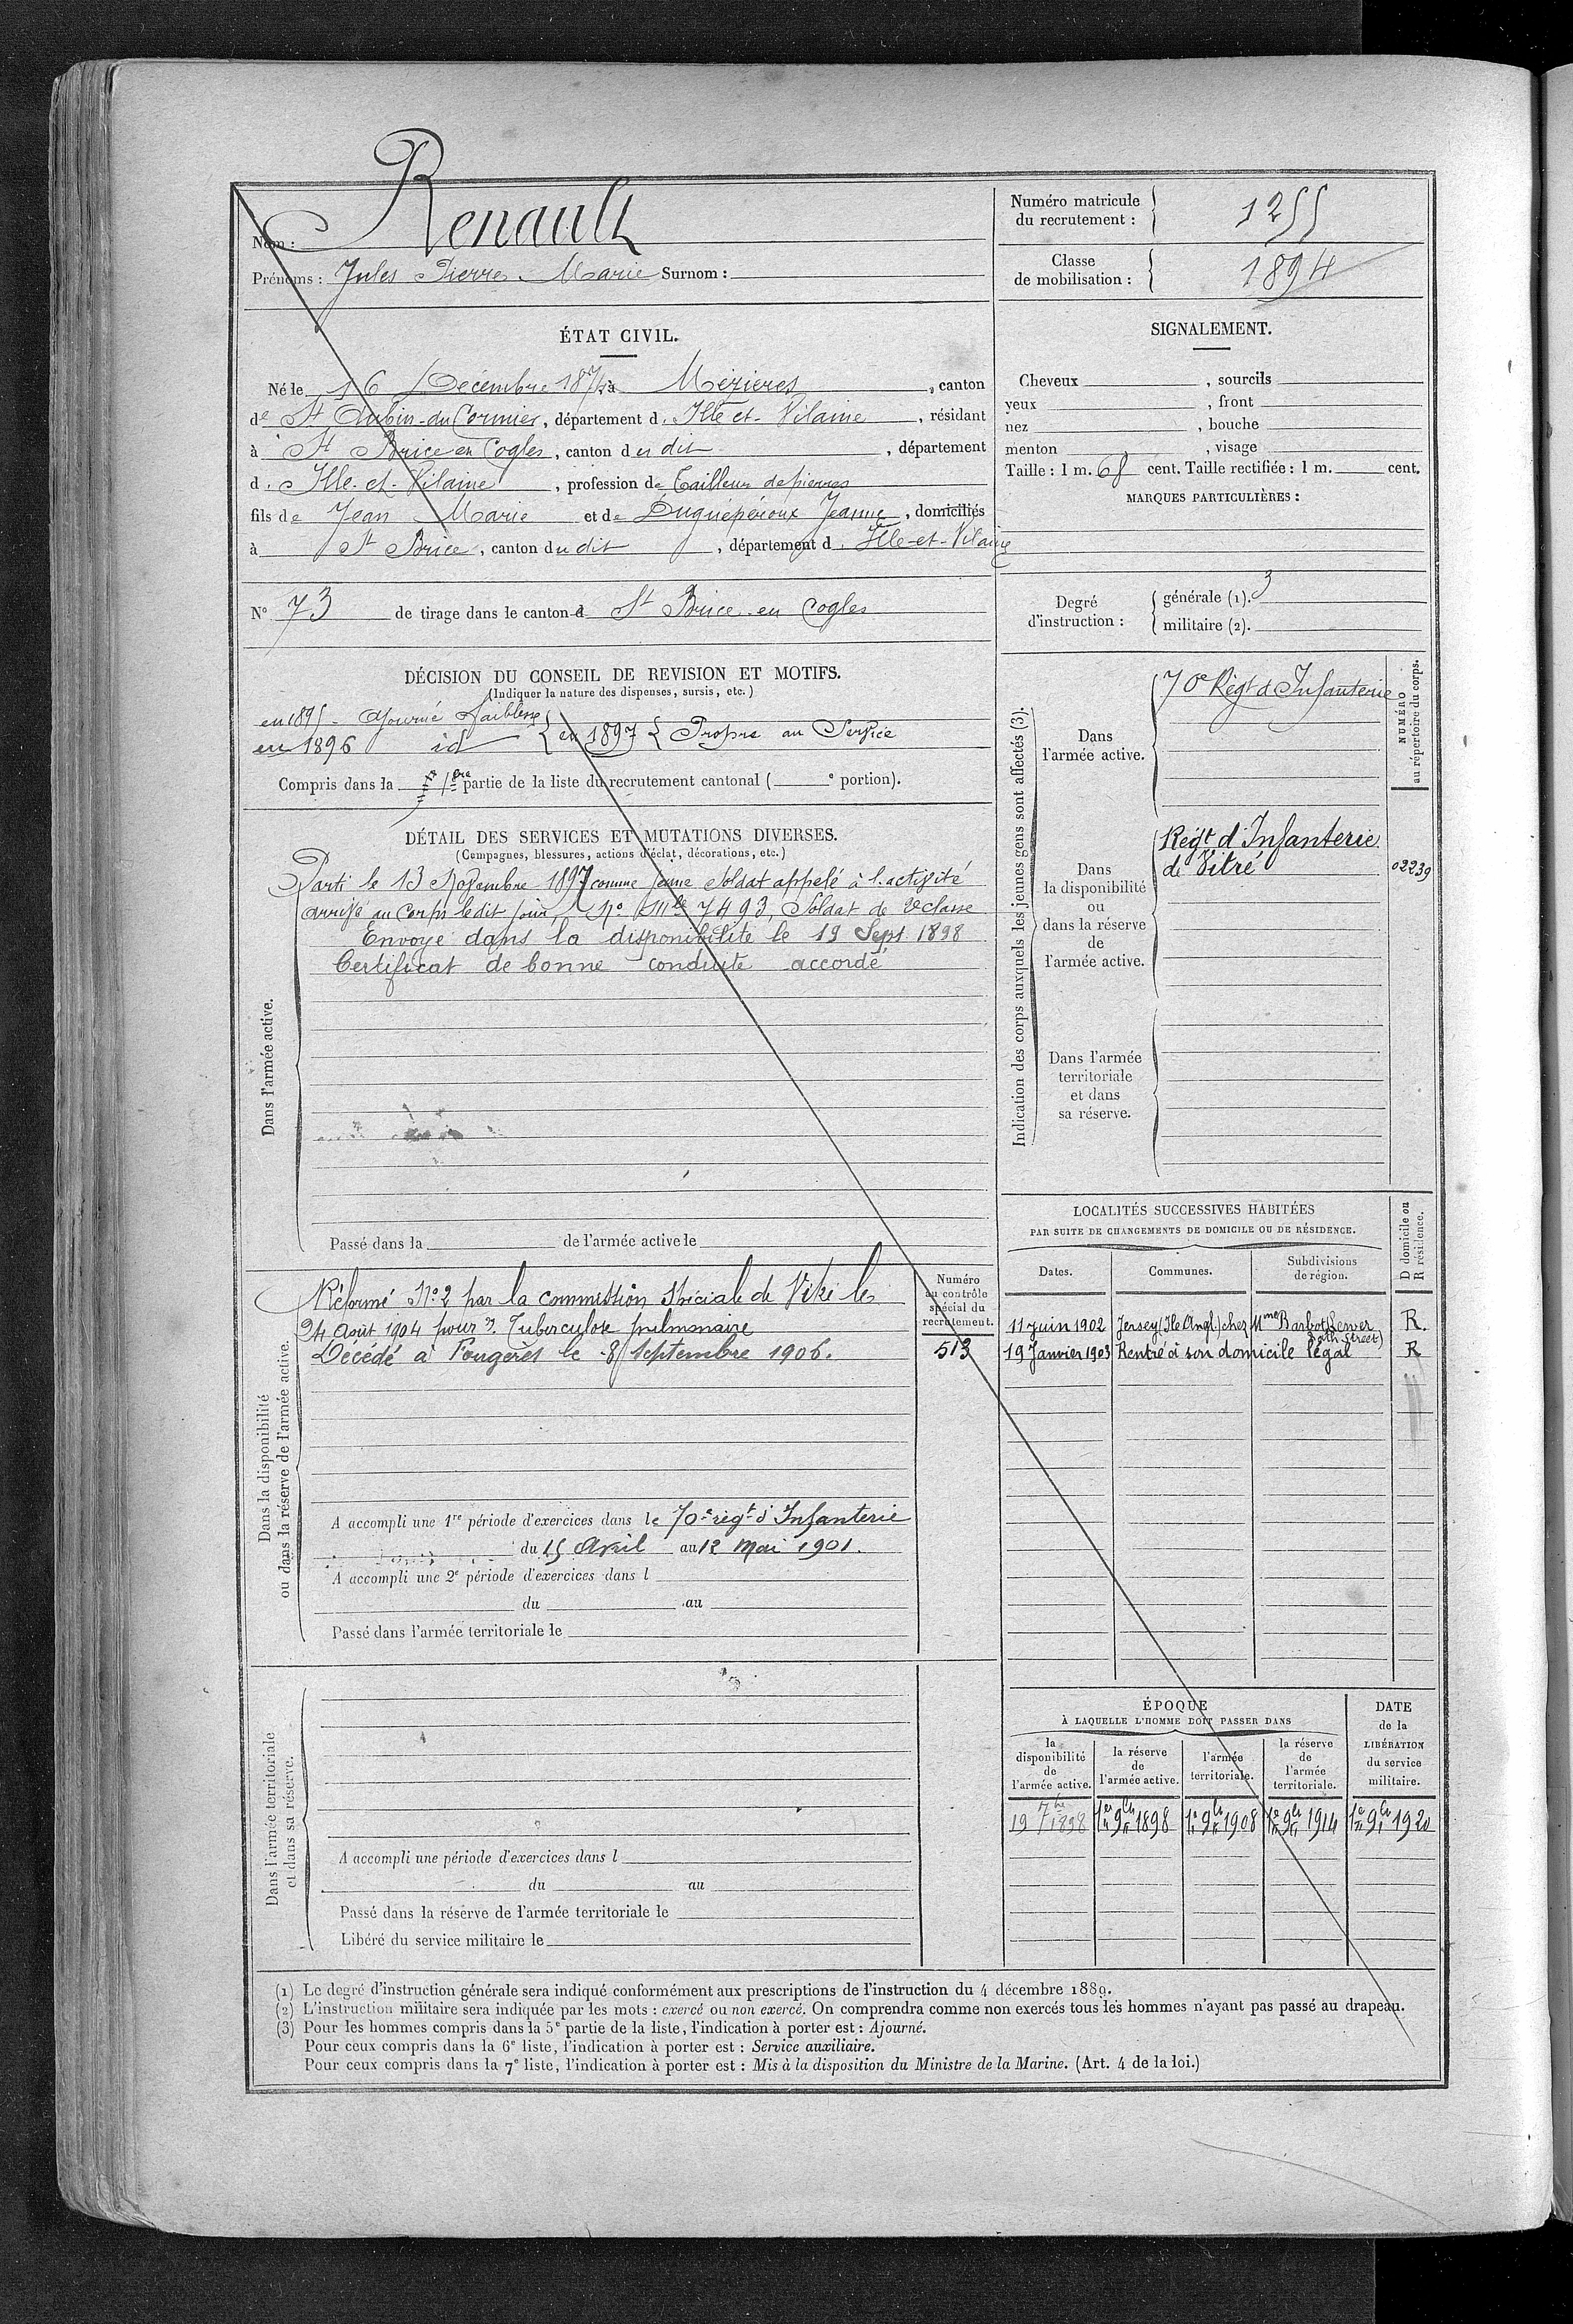 Nom : Renault
Prénoms : Jules Pierre Marie Surnom :
ÉTAT CIVIL.
Né le 16 Décembre 1874 à Mézières, canton
de St Aubin-du-Cormier, département d. Ille et-Vilaine, résidant
à St Brice en Cogles, canton du dit, département
d. Ille-et-Vilaine, profession de Tailleur de pierres
fils de Jean Marie et de Duguépéroux Jeanne, domiciliés
à St Brice, canton du dit, département d. Ille-et-Vilaine
N° 73 de tirage dans le canton d St Brice-en Cogles
DÉCISION DU CONSEIL DE REVISION ET MOTIFS.
(Indiquer la nature des dispenses, sursis, etc.)
en 1895 - Ajourné faiblesse
en 1896 id { en 1897 { Propre au Service
Compris dans la 1ère partie de la liste du recrutement cantonal ( e portion).
DÉTAIL DES SERVICES ET MUTATIONS DIVERSES.
(Campagnes, blessures, actions d'éclat, décorations, etc.)
Dans l'armée active.
Parti le 13 Novembre 1897 comme jeune soldat appelé à l'activité
arrivé au Corps ledit jour, N° Mle 7493, Soldat de 2e classe
Envoyé dans la disponibilité le 19 Sept 1898
Certificat de bonne conduite accordé
Passé dans la de l'armée active le
Dans la disponibilité
ou dans la réserve de l'armée active.
Réformé N° 2 par la commission spéciale de Vitré le
24 Août 1904 pour Tuberculose pulmonaire
Décédé à Fougères le 8 Septembre 1906.
Numéro
au contrôle
spécial du
recrutement.
513
A accompli une 1re période d'exercices dans le 70e régt d'Infanterie
du 15 Avril au 12 Mai 1901.
A accompli une 2e période d'exercices dans l
du au
Passé dans l'armée territoriale le
Dans l'armée territoriale
et dans sa réserve.
A accompli une période d'exercices dans l
du au
Passé dans la réserve de l'armée territoriale le
Libéré du service militaire le
Numéro matricule
du recrutement :
1255
Classe
de mobilisation :
1894
SIGNALEMENT.
Cheveux , sourcils
yeux , front
nez , bouche
menton , visage
Taille : 1 m. 68 cent. Taille rectifiée : 1 m. cent.
MARQUES PARTICULIÈRES :
Degré
d'instruction :
générale (1). 3
militaire (2).
Indication des corps auxquels les jeunes gens sont affectés (3).
Dans
l'armée active.
70e Régt d'Infanterie
NUMÉRO
au répertoire du corps.
Dans
la disponibilité
ou
dans la réserve
de
l'armée active.
Régt d'Infanterie
de Vitré
02239
Dans l'armée
territoriale
et dans
sa réserve.
LOCALITÉS SUCCESSIVES HABITÉES
PAR SUITE DE CHANGEMENTS DE DOMICILE OU DE RÉSIDENCE.
Dates. Communes. Subdivisions
de région.
D domicile ou
R résidence.
11 Juin 1902 Jersey (Ile Angl.) chez Mme Barbot R.
Street)
19 Janvier 1903 Rentré à son domicile légal R
ÉPOQUE
À LAQUELLE L'HOMME DOIT PASSER DANS
la
disponibilité
de
l'armée active.
la réserve
de
l'armée active.
l'armée
territoriale.
la réserve
de
l'armée
territoriale.
DATE
de la
LIBÉRATION
du service
militaire.
19 7bre 1898 1er 9bre 1898 1er 9bre 1908 1er 9bre 1914 1er 9bre 1920
(1) Le degré d'instruction générale sera indiqué conformément aux prescriptions de l'instruction du 4 décembre 1889.
(2) L'instruction militaire sera indiquée par les mots : exercé ou non exercé. On comprendra comme non exercés tous les hommes n'ayant pas passé au drapeau.
(3) Pour les hommes compris dans la 5e partie de la liste, l'indication à porter est : Ajourné.
Pour ceux compris dans la 6e liste, l'indication à porter est : Service auxiliaire.
Pour ceux compris dans la 7e liste, l'indication à porter est : Mis à la disposition du Ministre de la Marine. (Art. 4 de la loi.)